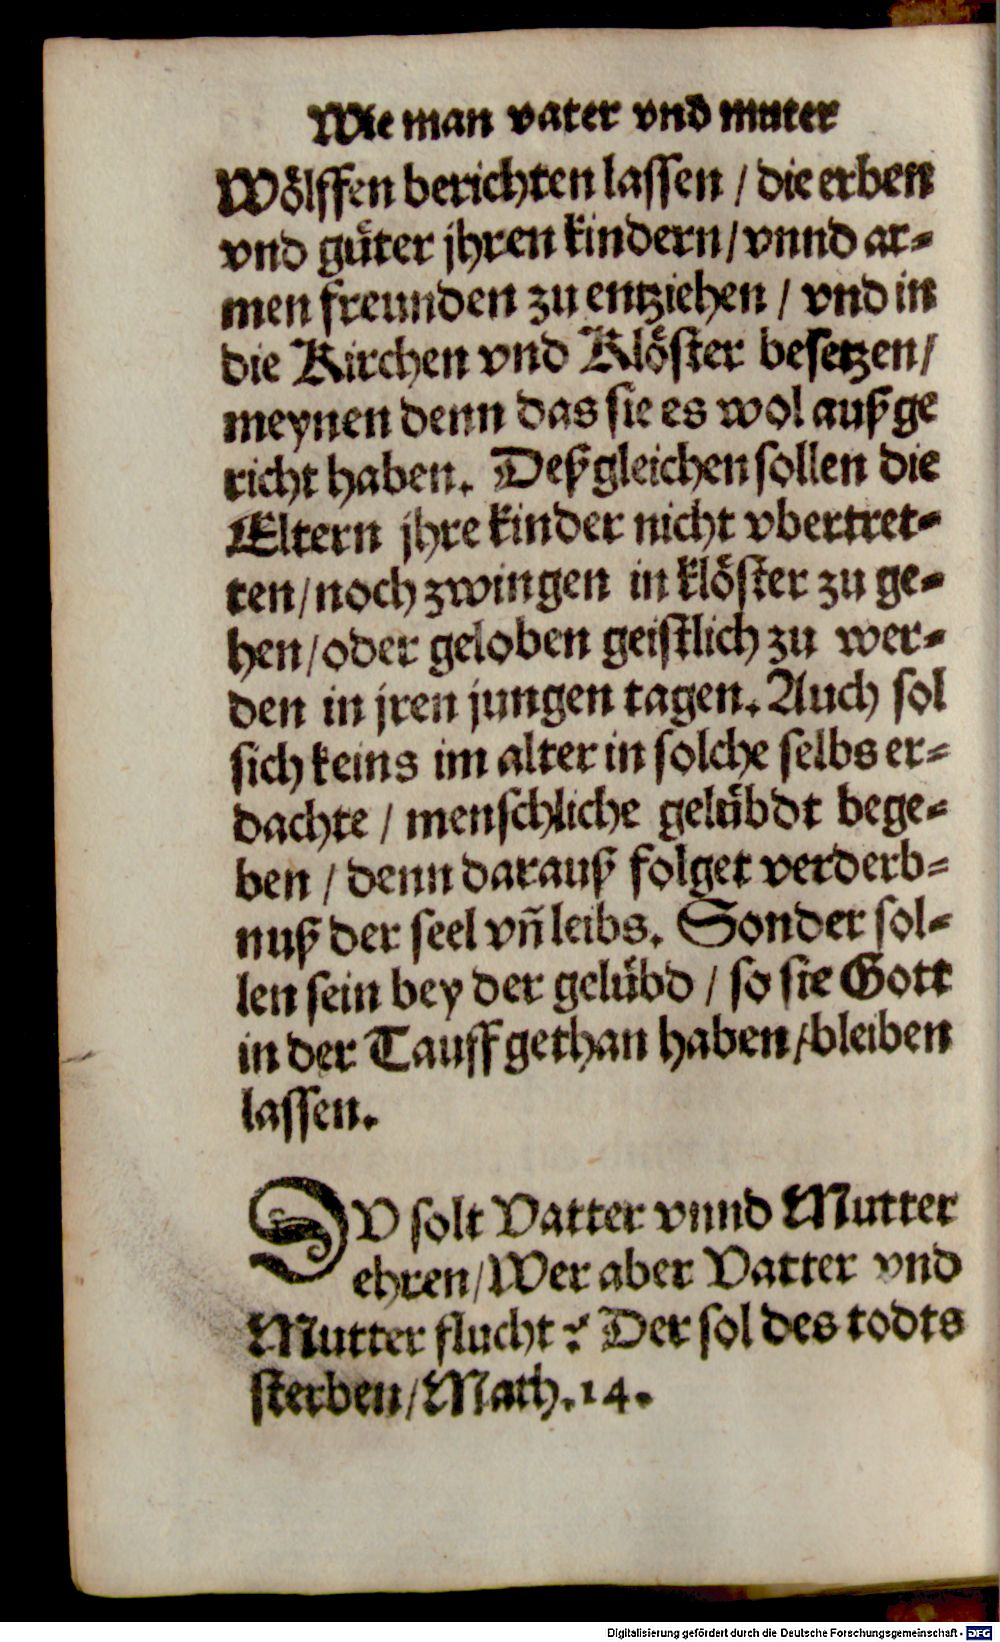 Wie man vater vnd muter
Wölffen berichten lassen / die erben
vnd güter jhren kindern / vnnd ar-
men freunden zu entziehen / vnd in
die Kirchen vnd Klöster besetzen /
meynen denn das sie es wol außge
richt haben. Deßgleichen sollen die
Eltern jhre kinder nicht vbertret-
ten / noch zwingen in klöster zu ge-
hen / oder geloben geistlich zu wer-
den in jren jungen tagen. Auch sol
sich keins im alter in solche selbs er-
dachte / menschliche gelübdt bege-
ben / denn darauß folget verderb-
nuß der seel vñ leibs. Sonder sol-
len sein bey der gelübd / so sie Gott
in der Tauff gethan haben / bleiben
lassen.
DV solt Vatter vnnd Mutter
ehren / Wer aber Vatter vnd
Mutter flucht : Der sol des todts
sterben / Math. 14.
Digitalisierung gefördert durch die Deutsche Forschungsgemeinschaft - DFG